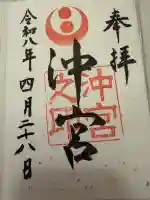 奉拝
沖宮
令和八年四月二十八日
沖宮
之印